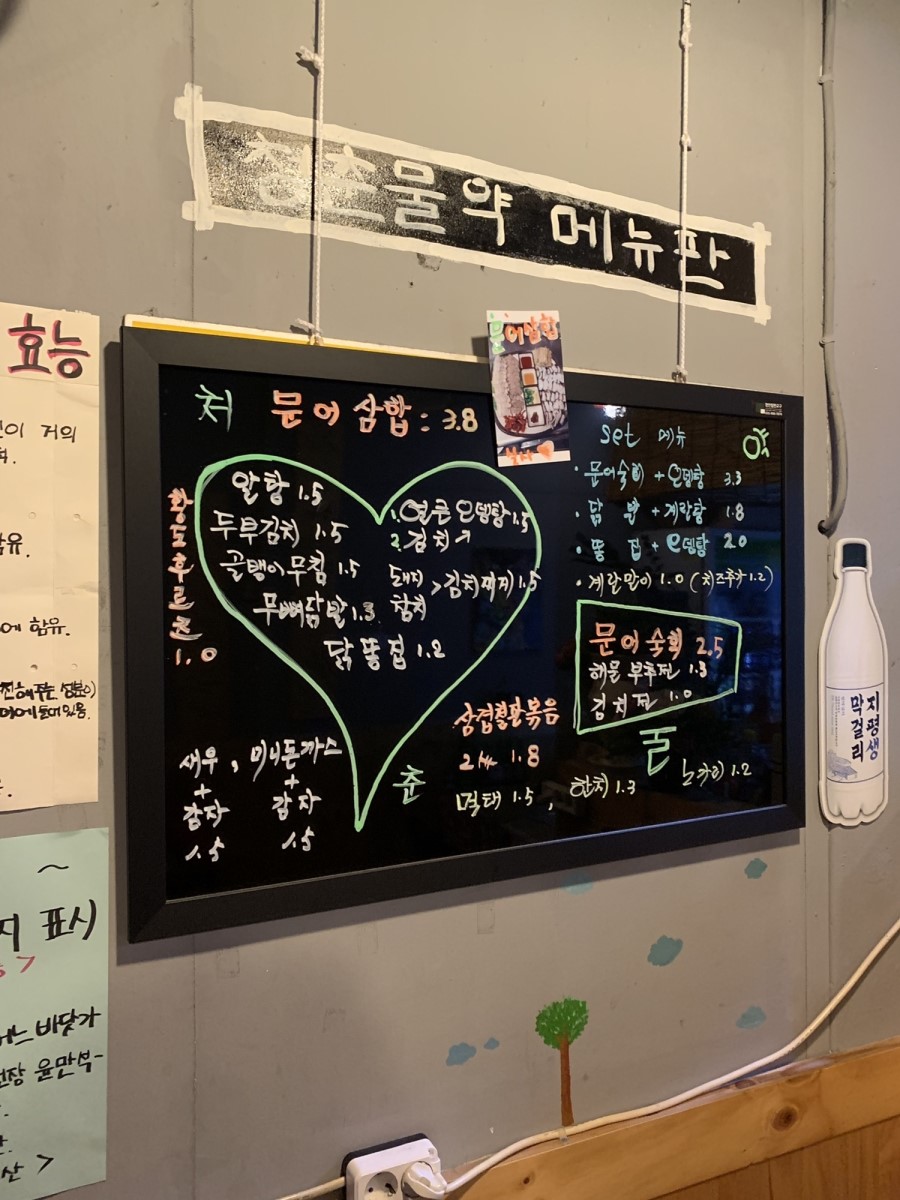 청춘물약 메뉴판
효능
문어삼합
처 문어삼합 : 3.8
알탕 1.5
두부김치 1.5
골뱅이무침 1.5
무뼈닭발 1.3
닭똥집 1.2
1. 얼큰 오뎅탕 1.5
2. 김치 〃
돼지
참치 > 김치찌개 1.5
황도후르츠
1.0
set 메뉴 약
· 문어숙회 + 오뎅탕 3.3
· 닭발 + 계란탕 1.8
· 똥집 + 오뎅탕 2.0
· 계란말이 1.0 (치즈추가 1.2)
문어숙회 2.5
해물 부추전 1.3
김치전 1.0
물
새우 , 미니돈까스
+ +
감자 감자
1.5 1.5
춘
볶음
1.8
먹태 1.5 , 한치 1.3
노가리 1.2
지평생
막걸리
거의
함유.
에 함유.
표시
바닷가